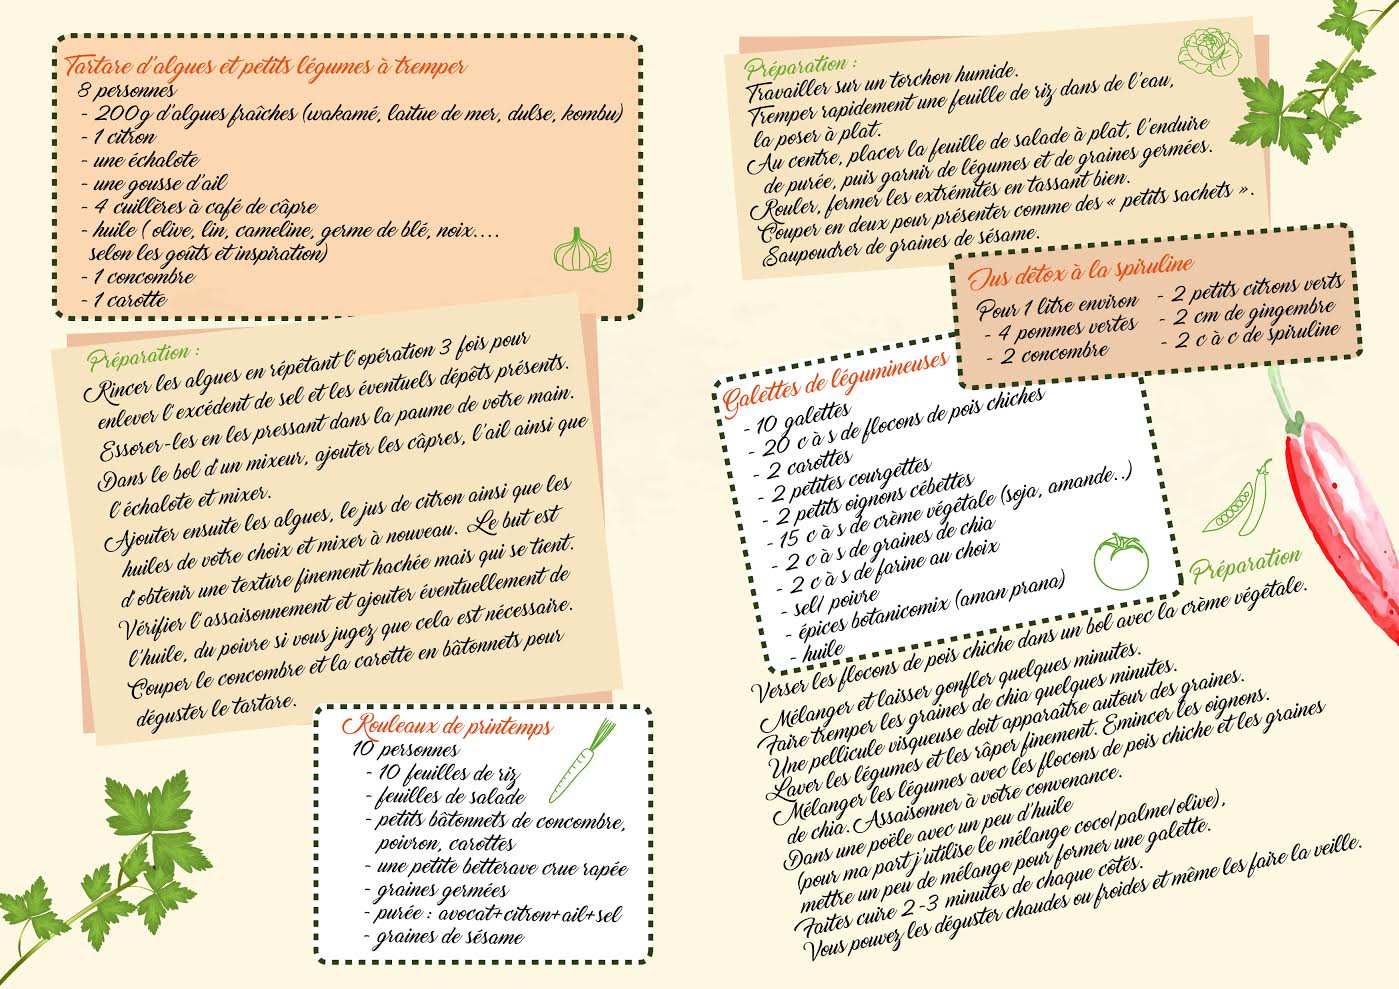 Tartare d'algues et petits légumes à tremper
8 personnes
- 200g d'algues fraîches (wakamé, laitue de mer, dulse, kombu)
- 1 citron
- une échalote
- une gousse d'ail
- 4 cuillères à café de câpre
- huile ( olive, lin, cameline, germe de blé, noix....
selon les goûts et inspiration)
- 1 concombre
- 1 carotte
Préparation :
Rincer les algues en répétant l'opération 3 fois pour
enlever l'excédent de sel et les éventuels dépôts présents.
Essorer-les en les pressant dans la paume de votre main.
Dans le bol d'un mixeur, ajouter les câpres, l'ail ainsi que
l'échalote et mixer.
Ajouter ensuite les algues, le jus de citron ainsi que les
huiles de votre choix et mixer à nouveau. Le but est
d'obtenir une texture finement hachée mais qui se tient.
Vérifier l'assaisonnement et ajouter éventuellement de
l'huile, du poivre si vous jugez que cela est nécessaire.
Couper le concombre et la carotte en bâtonnets pour
déguster le tartare.
Rouleaux de printemps
10 personnes
- 10 feuilles de riz
- feuilles de salade
- petits bâtonnets de concombre,
poivron, carottes
- une petite betterave crue rapée
- graines germées
- purée : avocat+citron+ail+sel
- graines de sésame
Préparation :
Travailler sur un torchon humide.
Tremper rapidement une feuille de riz dans de l'eau,
la poser à plat.
Au centre, placer la feuille de salade à plat, l'enduire
de purée, puis garnir de légumes et de graines germées.
Rouler, fermer les extrémités en tassant bien.
Couper en deux pour présenter comme des « petits sachets ».
Saupoudrer de graines de sésame.
Jus détox à la spiruline
Pour 1 litre environ
- 4 pommes vertes
- 2 concombre
- 2 petits citrons verts
- 2 cm de gingembre
- 2 c à c de spiruline
Galettes de légumineuses
- 10 galettes
- 20 c à s de flocons de pois chiches
- 2 carottes
- 2 petites courgettes
- 2 petits oignons cébettes
- 15 c à s de crème végétale (soja, amande..)
- 2 c à s de graines de chia
- 2 c à s de farine au choix
- sel/ poivre
- épices botanicomix (aman prana)
- huile
Préparation
Verser les flocons de pois chiche dans un bol avec la crème végétale.
Mélanger et laisser gonfler quelques minutes.
Faire tremper les graines de chia quelques minutes.
Une pellicule visqueuse doit apparaître autour des graines.
Laver les légumes et les râper finement. Emincer les oignons.
Mélanger les légumes avec les flocons de pois chiche et les graines
de chia. Assaisonner à votre convenance.
Dans une poêle avec un peu d'huile
(pour ma part j'utilise le mélange coco/palme/olive),
mettre un peu de mélange pour former une galette.
Faites cuire 2-3 minutes de chaque côtés.
Vous pouvez les déguster chaudes ou froides et même les faire la veille.